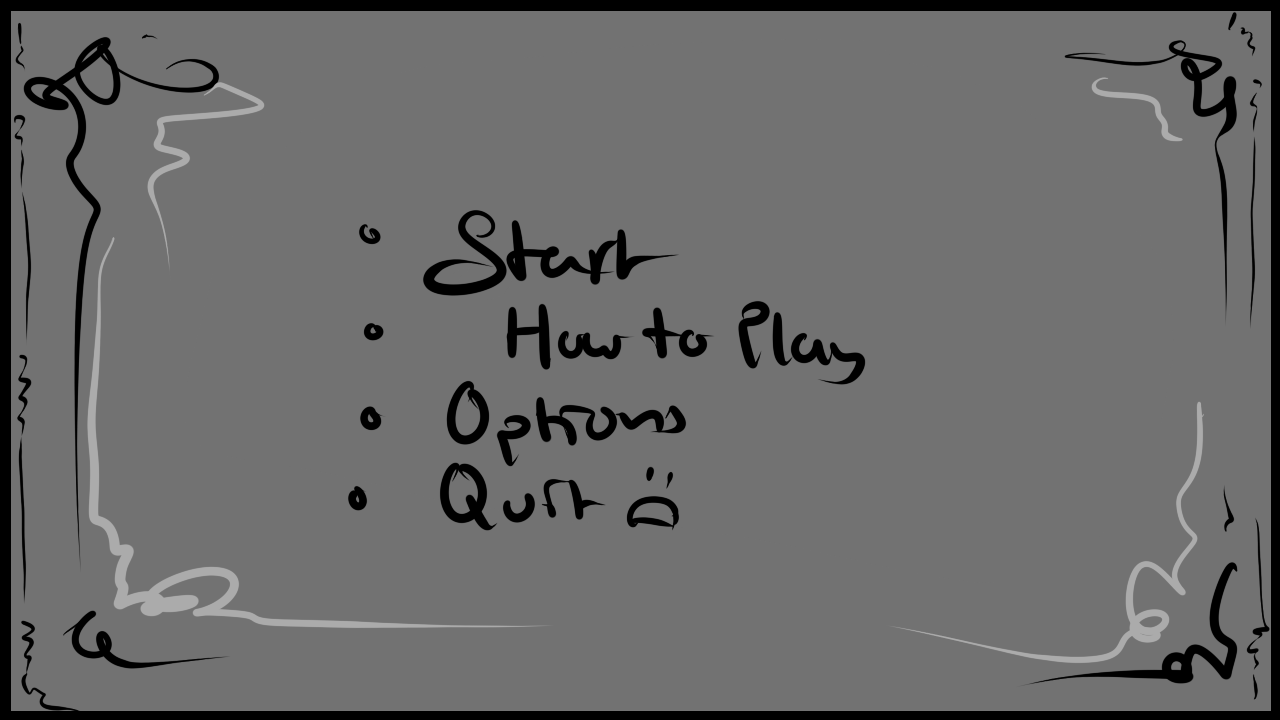 Start
How to Play
Options
Quit :(